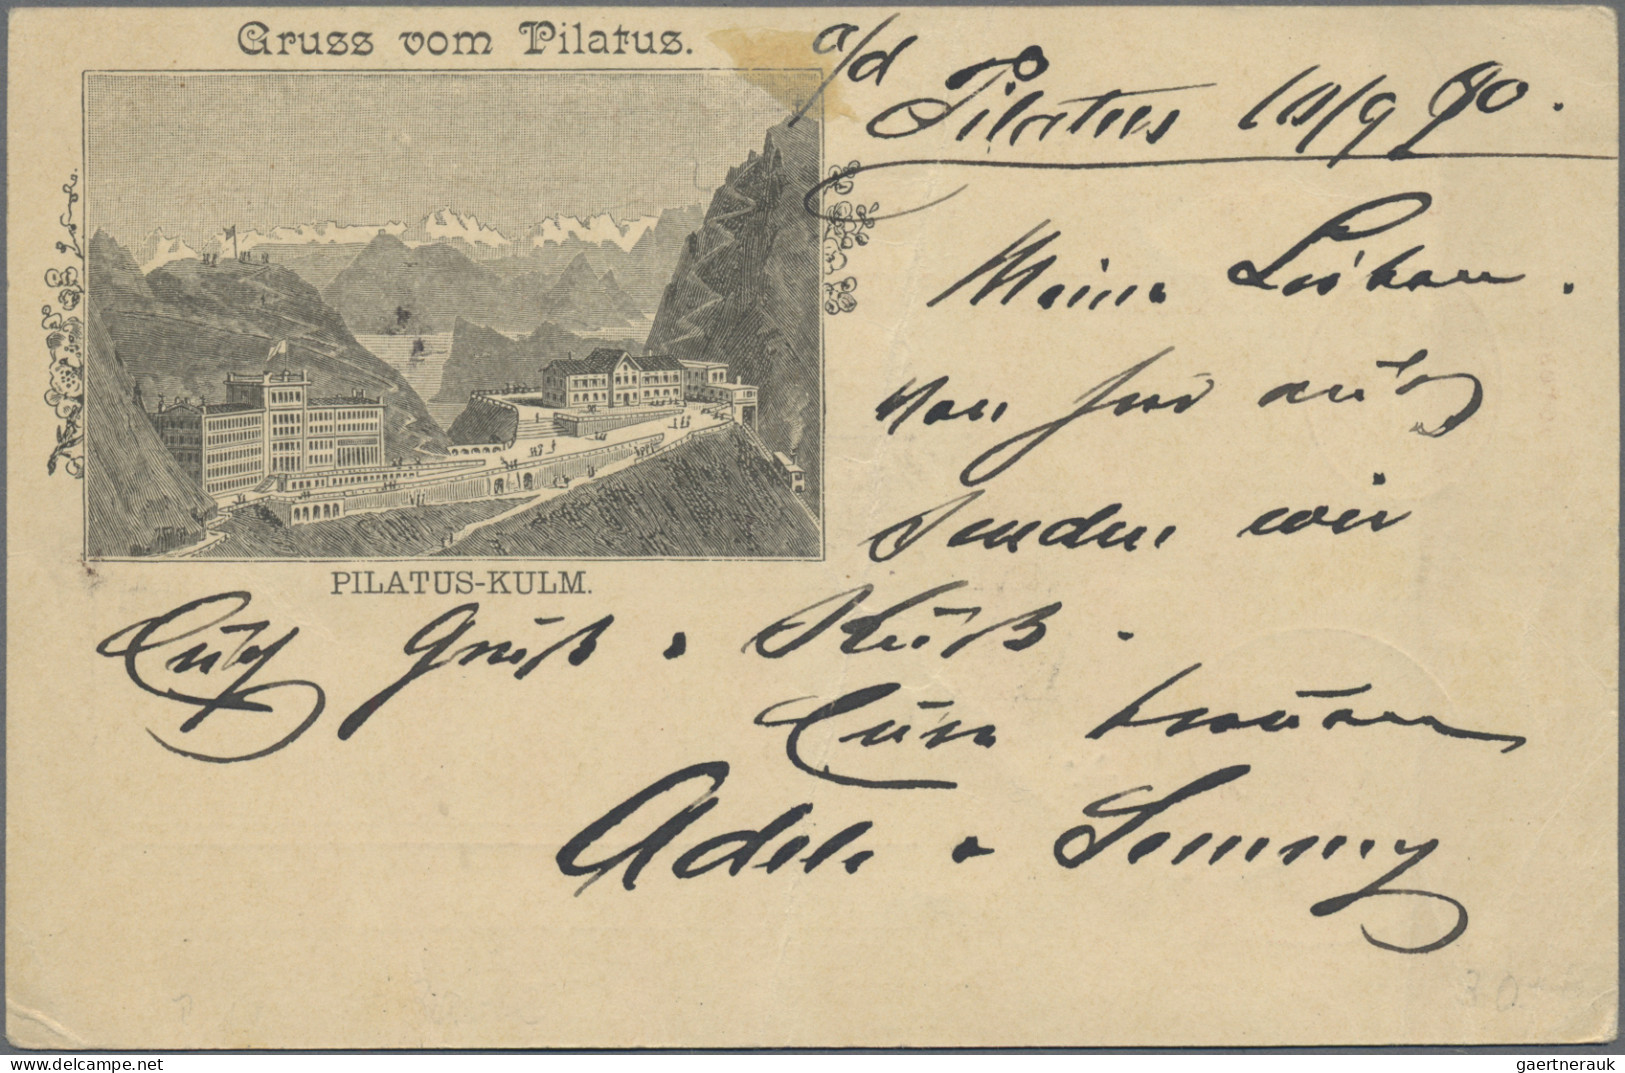 Gruss vom Pilatus.
a/d Pilatus 10/9 90.
Meine Lieben.
Von hier aus
senden wir
PILATUS-KULM.
Euch Gruß & Kuß.
Eure
Adele &
30
gaertnerauk @ delcampe.net